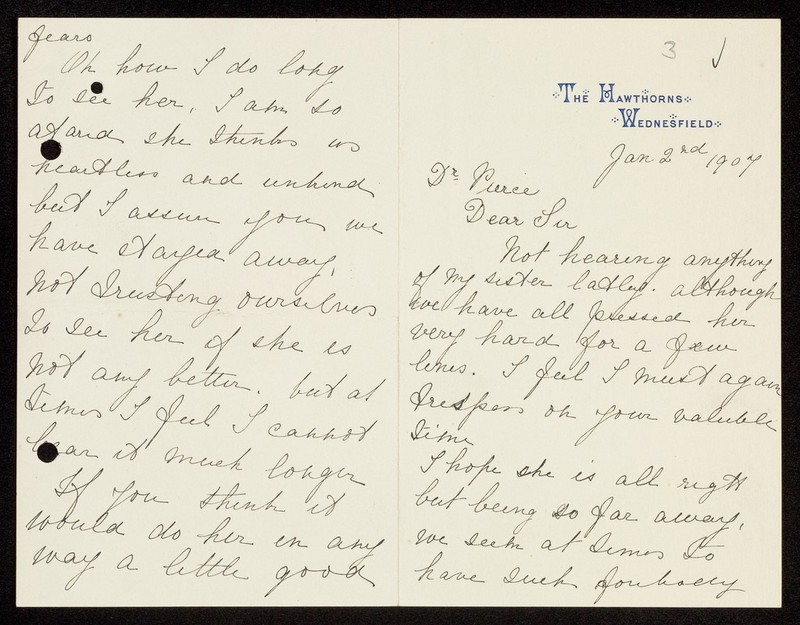 3
The Hawthorns
Wednesfield
Jan 2nd 1907
Dr Pierce
Dear Sir
Not hearing anything
of my sister latly. although
we have all pressed her
very hard for a few
lines. I feel I must again
trespass on your valuble
time
I hope she is all right
but being so far away,
we seem at times to
have such
fears
Oh how I do long
to see her, I am so
afarid she thinks us
heartless and unkind
but I assure you we
have stayed away,
not trusting ourselves
to see her if she is
not any better. but at
times I feel I cannot
bear it much longer
If you think it
would do her in any
way a little good